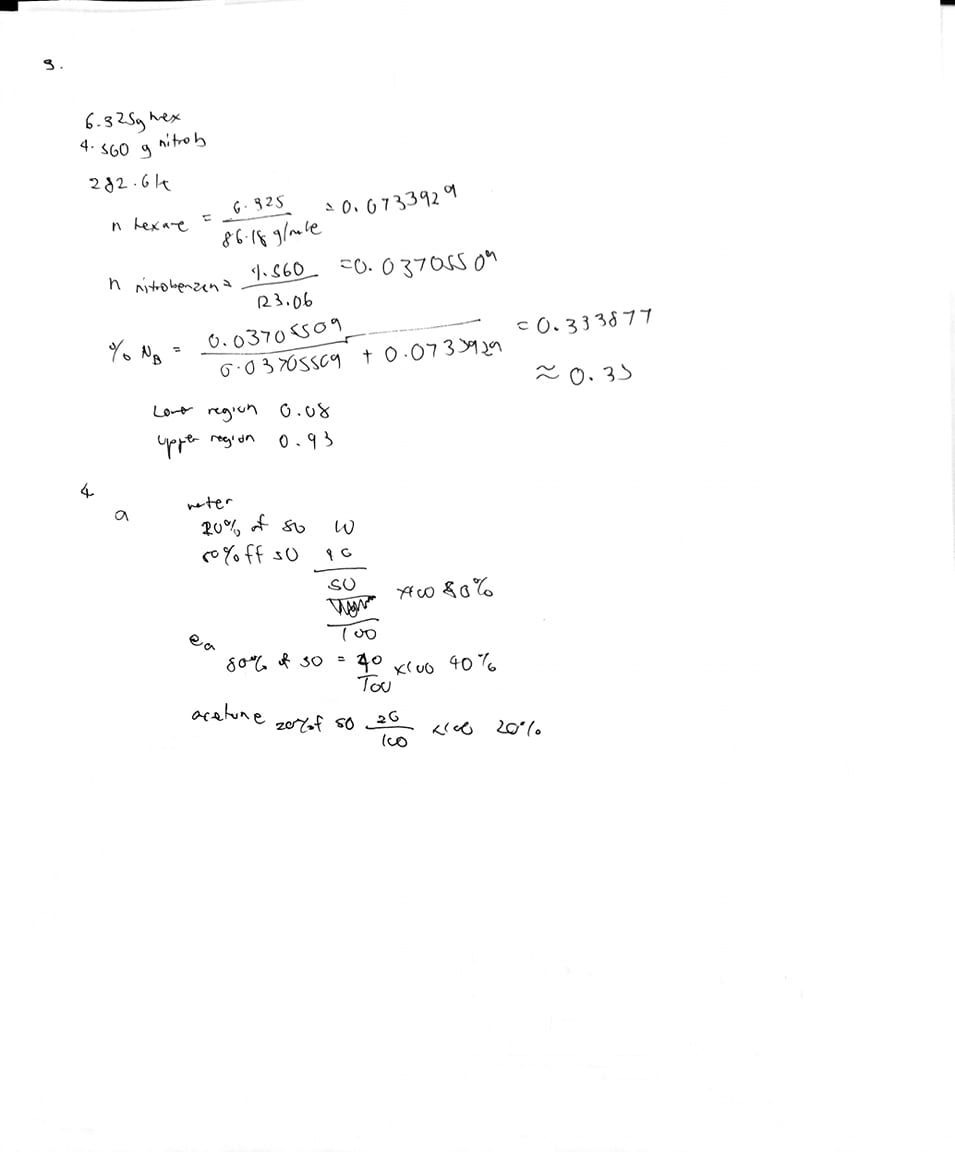 3.
6.325g hex
4.560 g nitrob
282.6 K
n hexane = 6.325 / 86.18 g/mole = 0.0733929
n nitobenzen = 4.560 / 123.06 = 0.03705509
% NB = 0.03705509 / 0.03705509 + 0.0733929 = 0.333877
≈ 0.33
Lower region 0.08
Upper region 0.93
4
a
water
20% of 50 10
50
100
x100 80%
ea
80% of 50 = 40 / 100 x100 40%
acetone 20% of 50 20 / 100 x100 20%